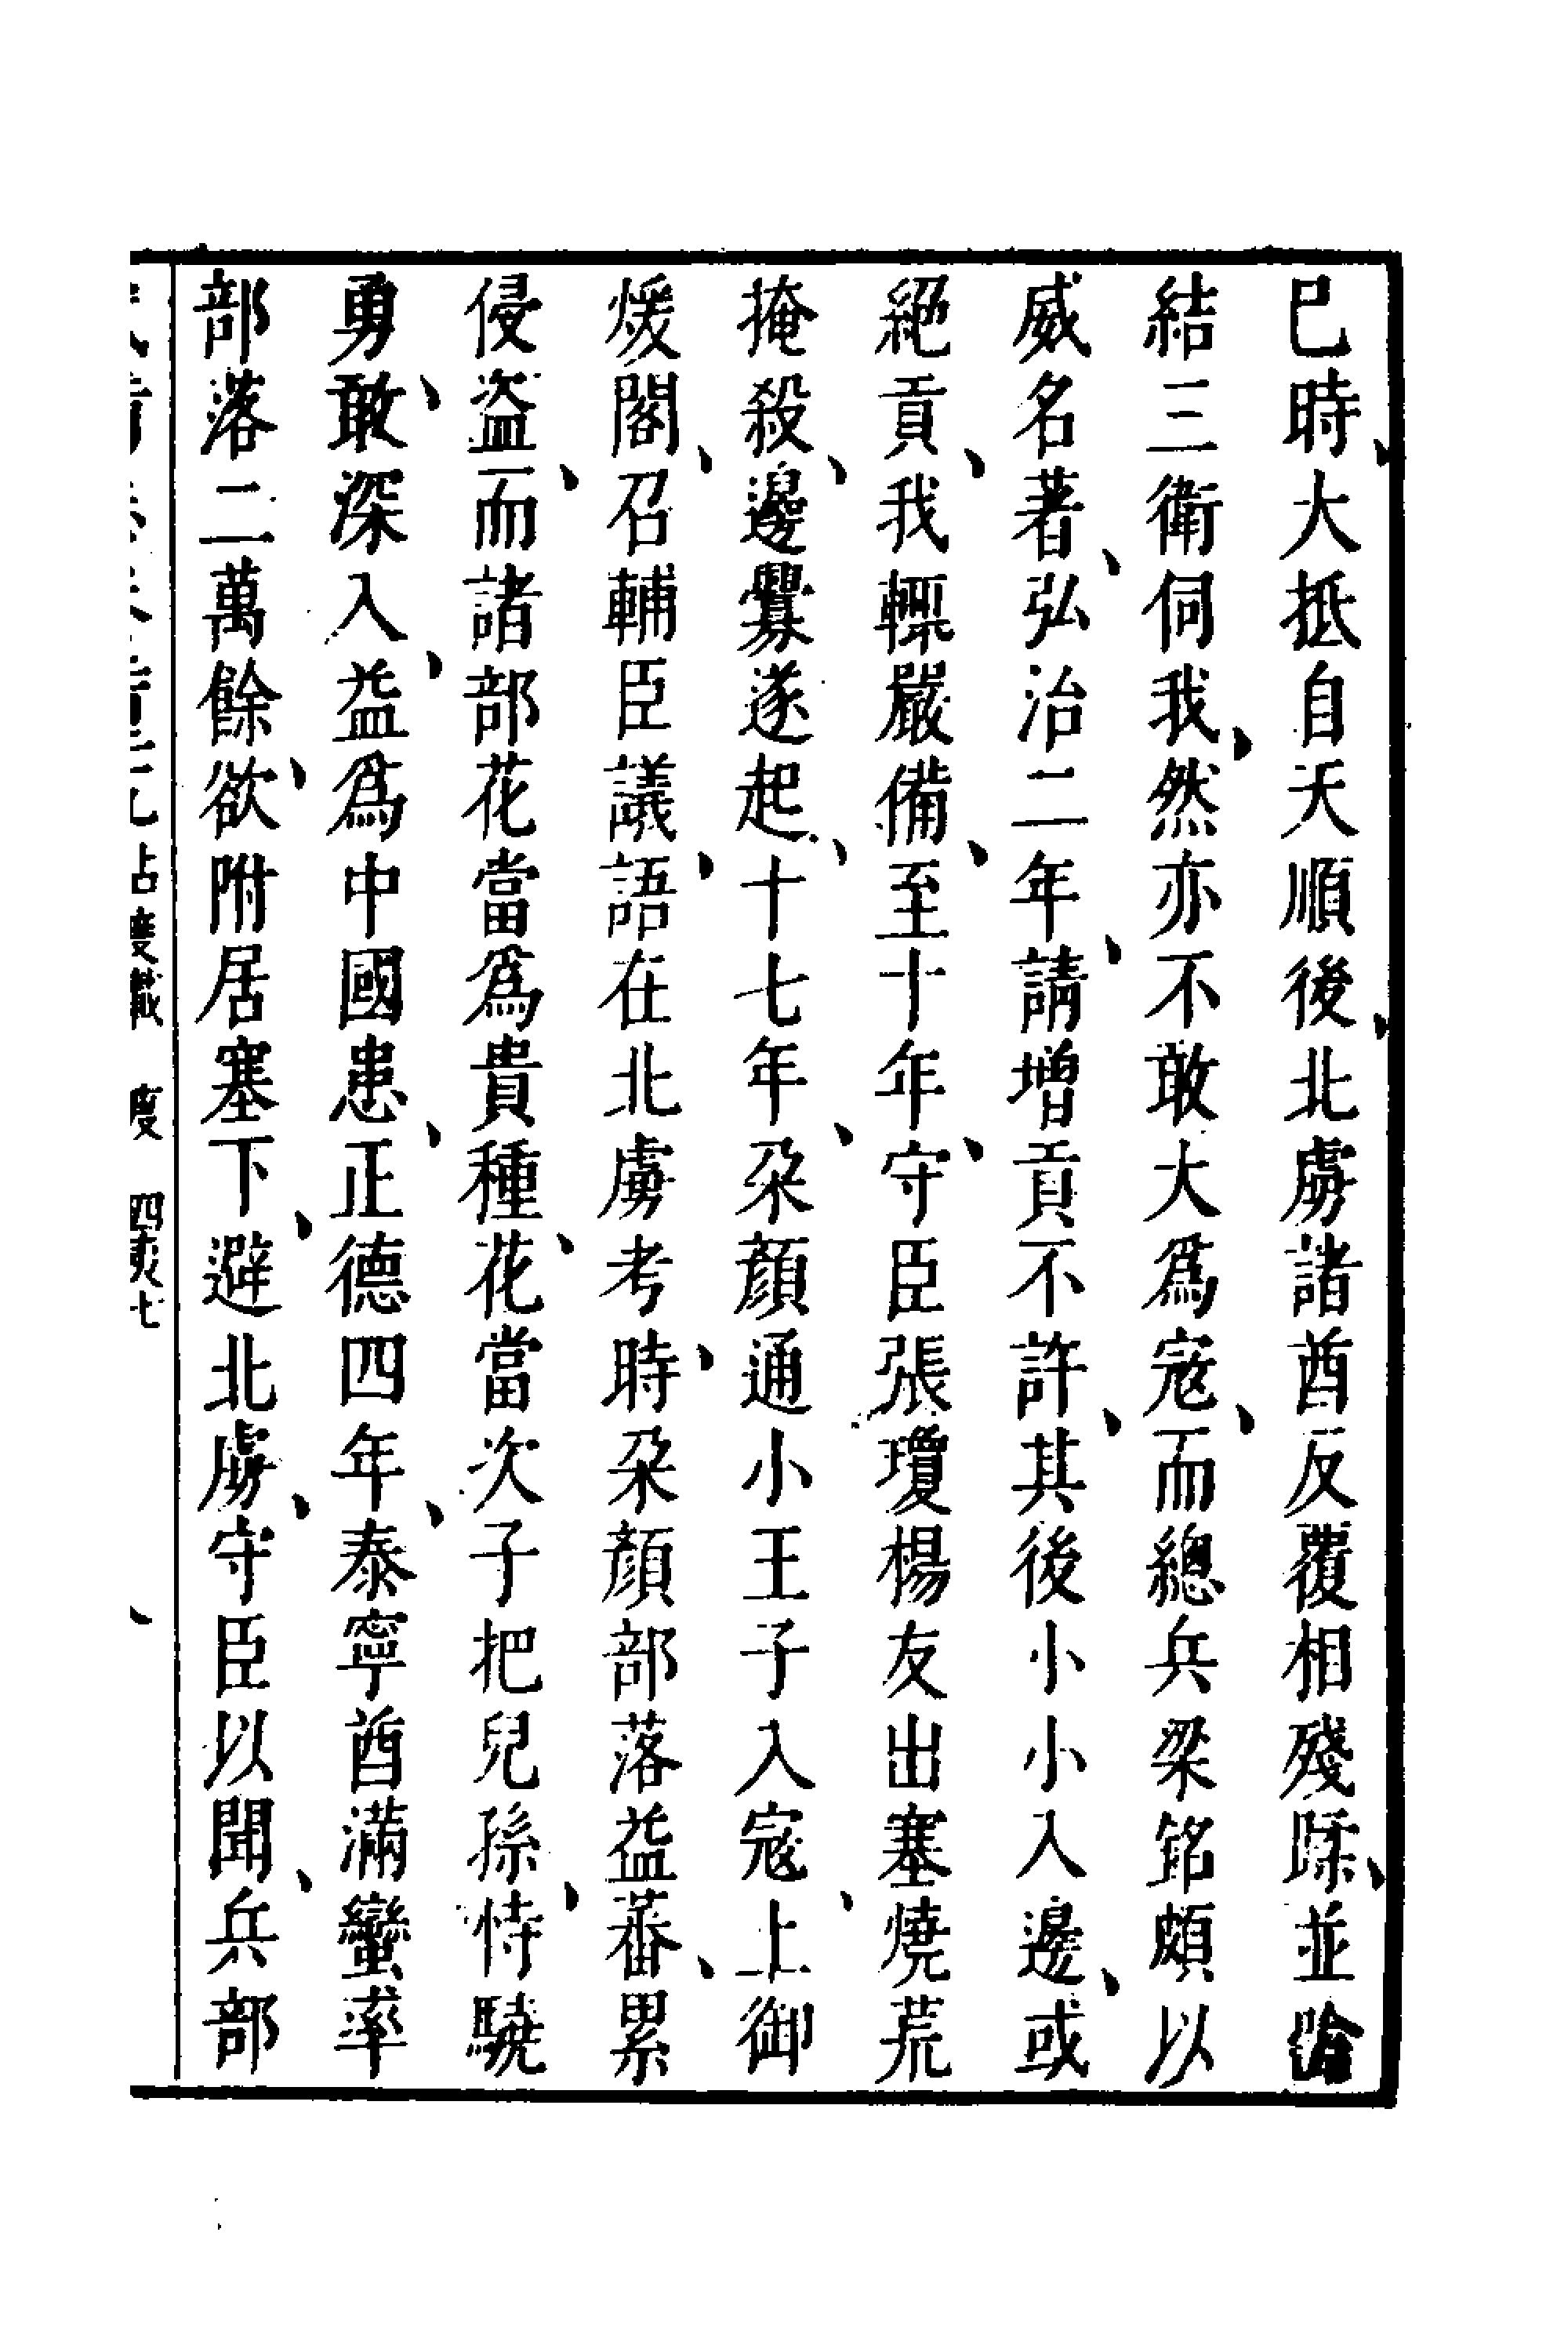 已時、大抵自天順後、北虜諸酋反覆相殘蹂、並啗
結三衛伺我、然亦不敢大為寇、而總兵梁銘頗以
威名著、弘治二年、請增貢不許、其後小小入邊、或
絕貢、我輒嚴備、至十年、守臣張瓊楊友出塞燒荒
掩殺、邊釁遂起、十七年、朶顏通小王子入寇、上御
煖閣、召輔臣議、語在北虜考、時朶顏部落益蕃、累
侵盜、而諸部花當爲貴種、花當次子把兒孫、恃驍
勇、敢深入、益爲中國患、正德四年、泰寧酋滿蠻率
部落二萬餘、欲附居塞下、避北虜、守臣以聞、兵部
占度載 度 四夷七